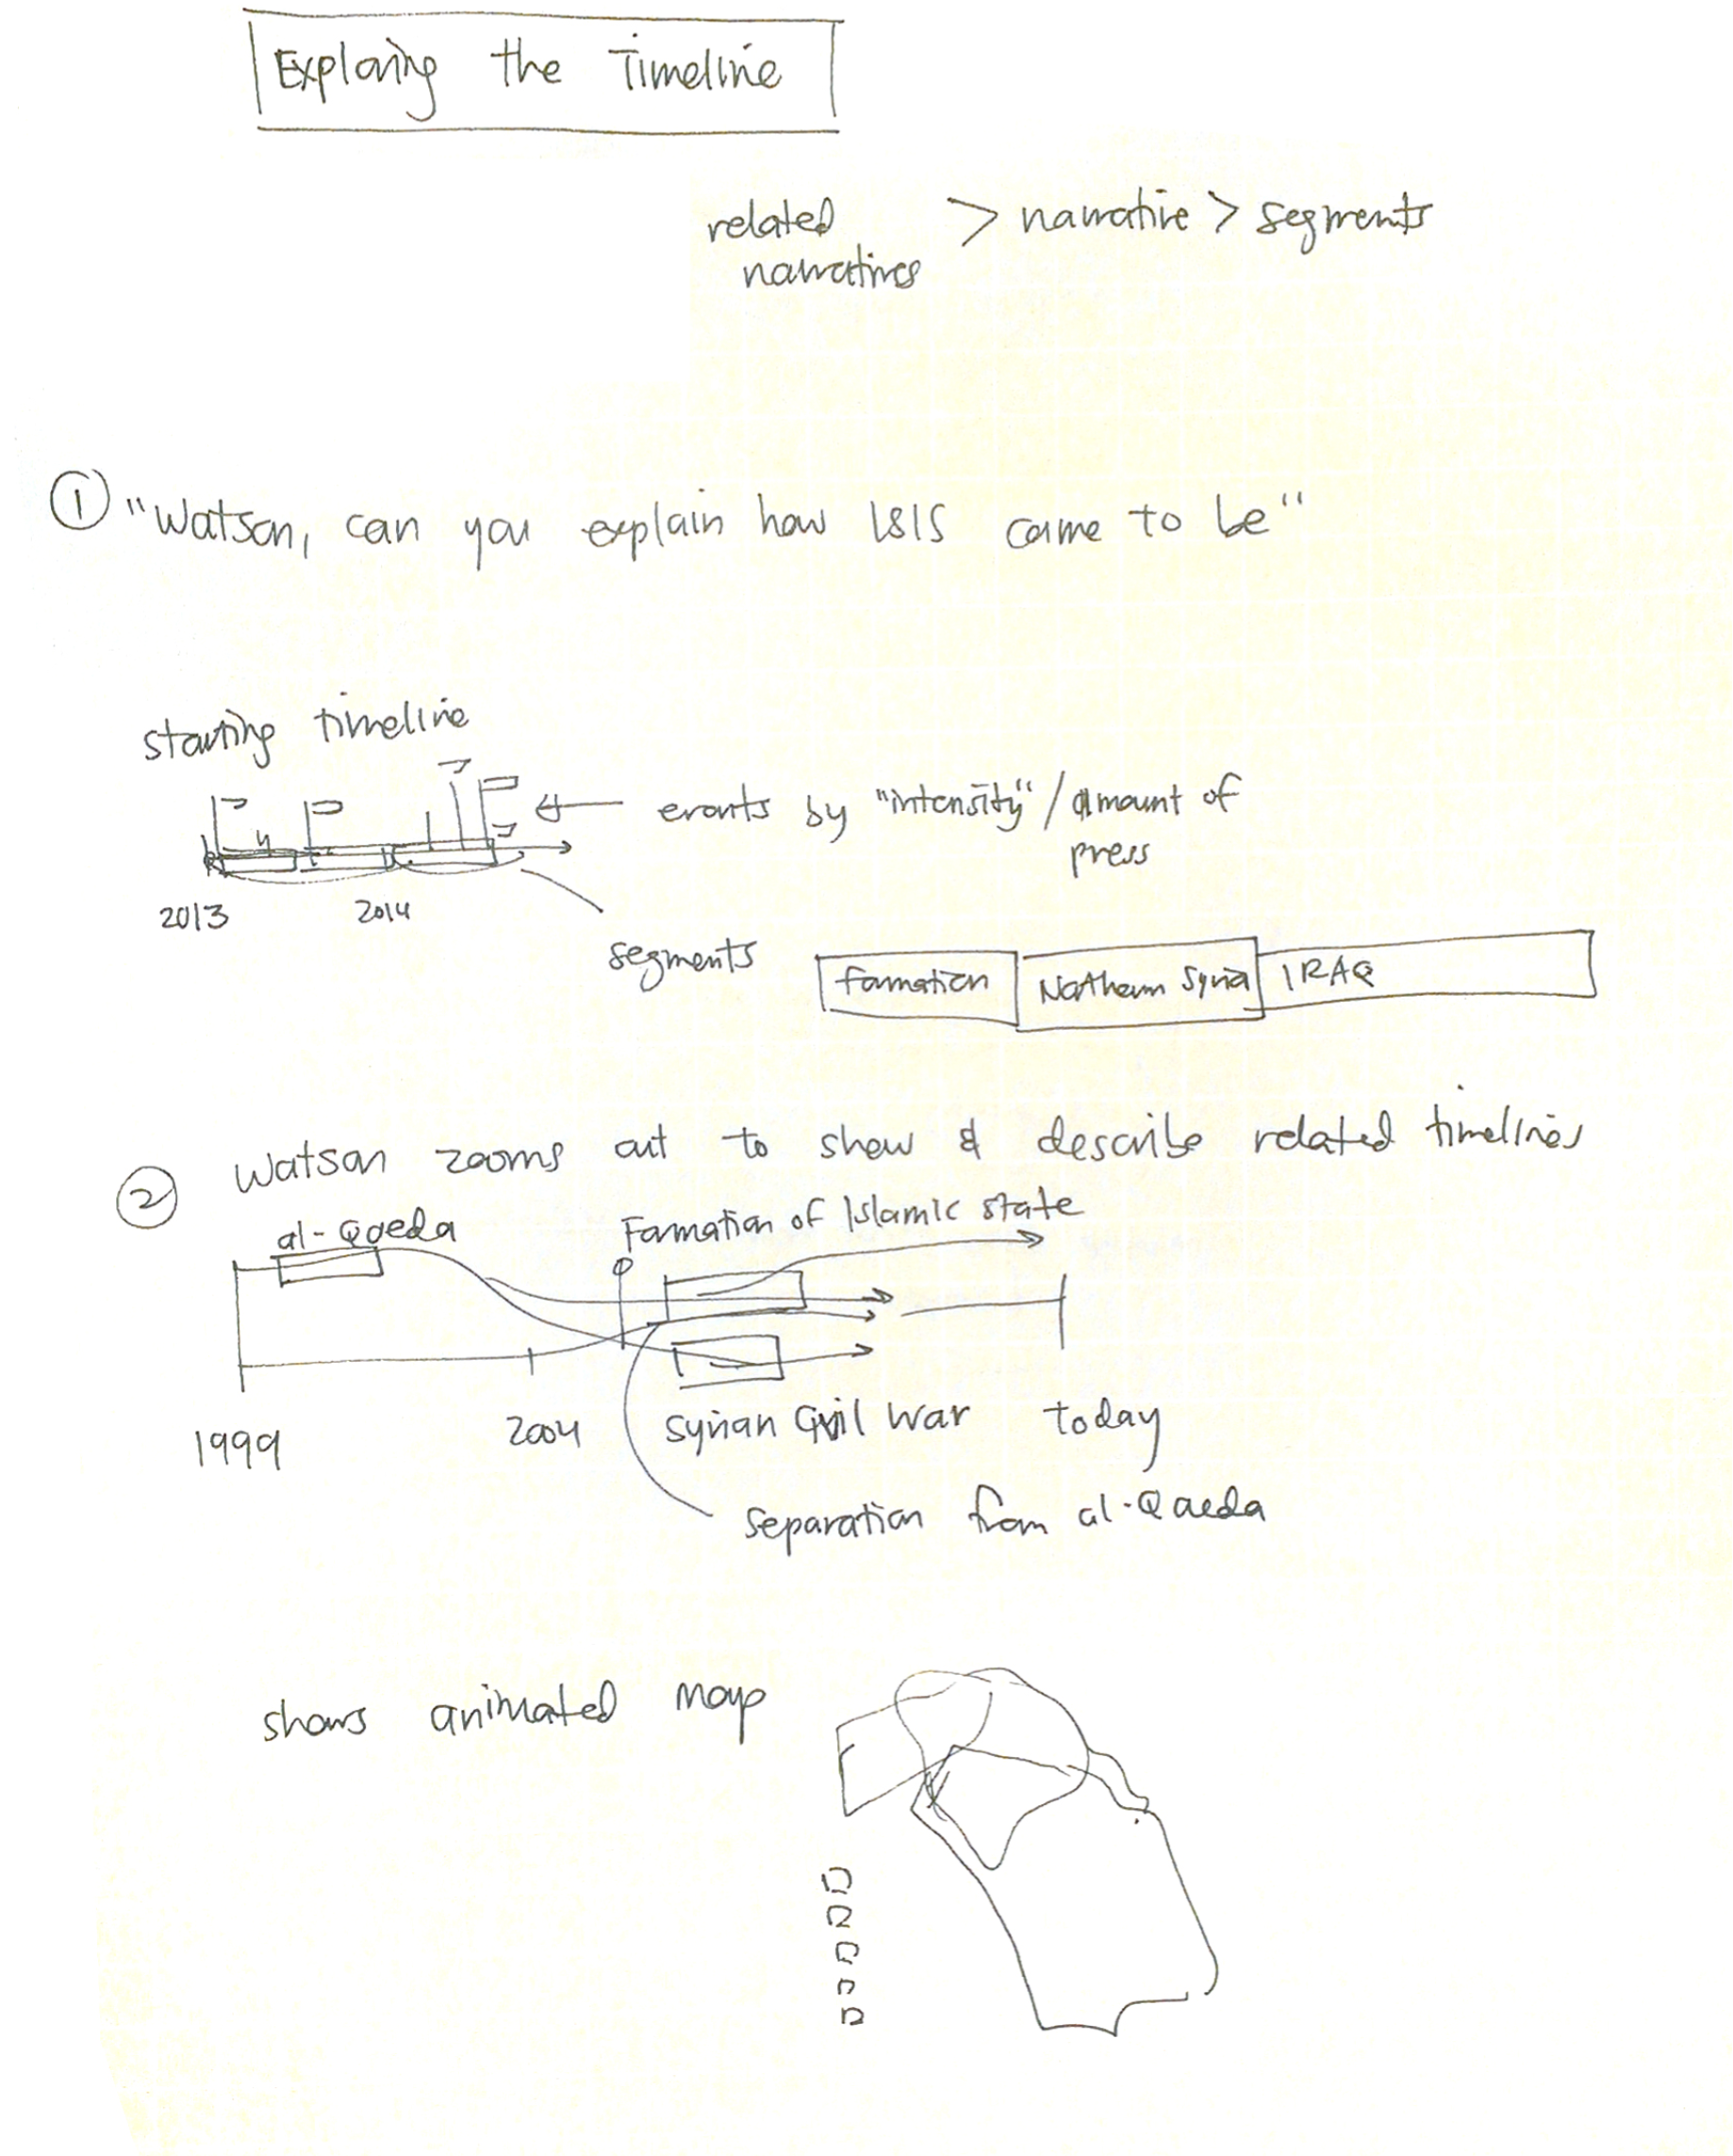 Exploring the Timeline
related > narrative > segments
narratives
① "Watson, can you explain how ISIS came to be"
starting timeline
events by "intensity" / amount of
press
2013 2014
segments
Formation Northern Syria IRAQ
② Watson zooms out to show & describe related timelines
al-Qaeda Formation of Islamic state
1999 2004 Syrian Civil War today
Separation from al-Qaeda
shows animated map